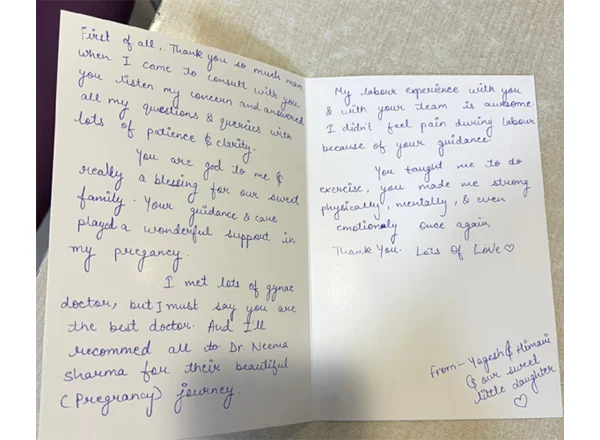 First of all, Thank you so much mam
when I came to consult with you
you listen my concern and answered
all my questions & queries with
lots of patience & clarity.
You are god to me &
really a blessing for our sweet
family. Your guidance & care
played a wonderful support in
my pregancy.
I met lots of gynae
doctor, but I must say you are
the best doctor. And I'll
recommed all to Dr. Neema
Sharma for their beautiful
(Pregrancy) journey.
My labour experience with you
& with your team is awesome.
I didn't feel pain during labour
because of your guidance
You taught me to do
exercise, you made me strong
physically, mentally, & even
emotionaly once again,
Thank You. Lots of Love ♡
from - Yogesh & Himani
& our sweet
little daughter
♡